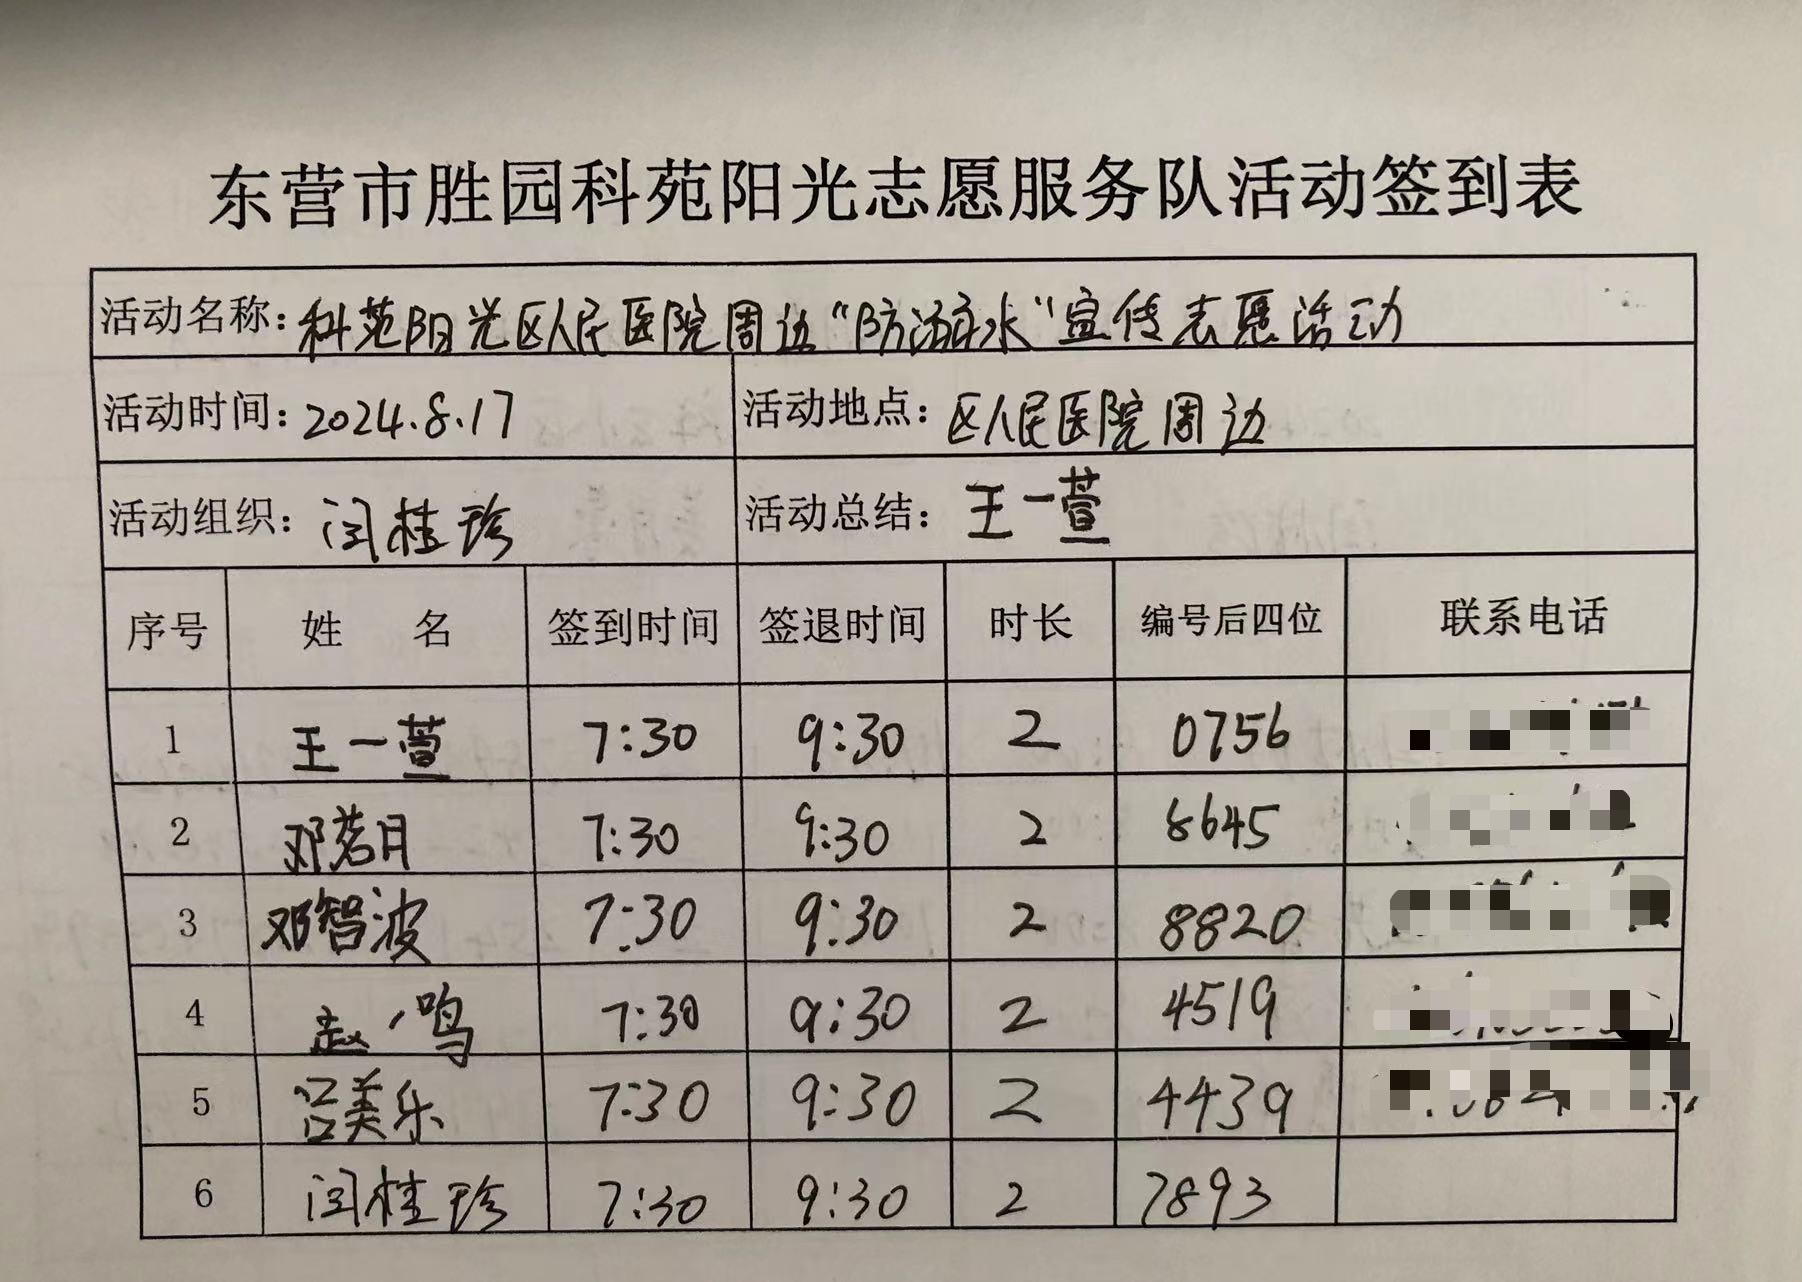 东营市胜园科苑阳光志愿服务队活动签到表
活动名称：科苑阳光区人民医院周边“防溺水”宣传志愿活动
活动时间：2024.8.17 活动地点：区人民医院周边
活动组织：闫桂珍 活动总结：王一萱
序号 姓名 签到时间 签退时间 时长 编号后四位 联系电话
1 王一萱 7:30 9:30 2 0756
2 邓若月 7:30 9:30 2 8645
3 邓智波 7:30 9:30 2 8820
4 赵一鸣 7:30 9:30 2 4519
5 吕美乐 7:30 9:30 2 4439
6 闫桂珍 7:30 9:30 2 7893